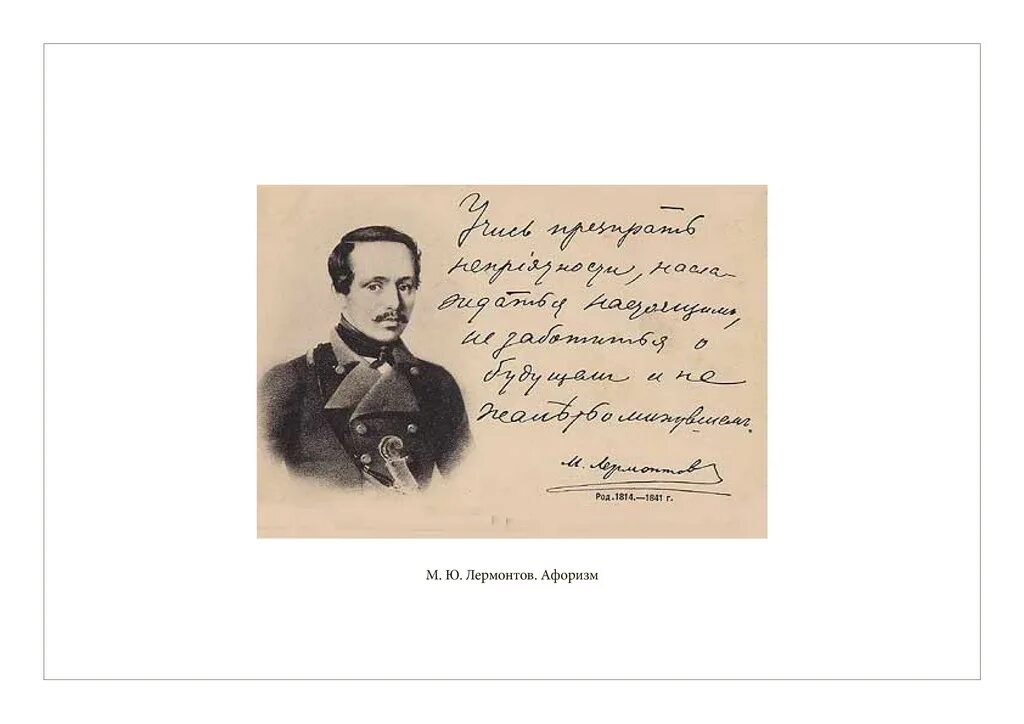 Учись презирать
непріятности, насла-
ждаться настоящимъ,
не заботиться о
будущемъ и не
жалѣть о минувшемъ.
М. Лермонтов
Род. 1814.—1841 г.
М. Ю. Лермонтов. Афоризм